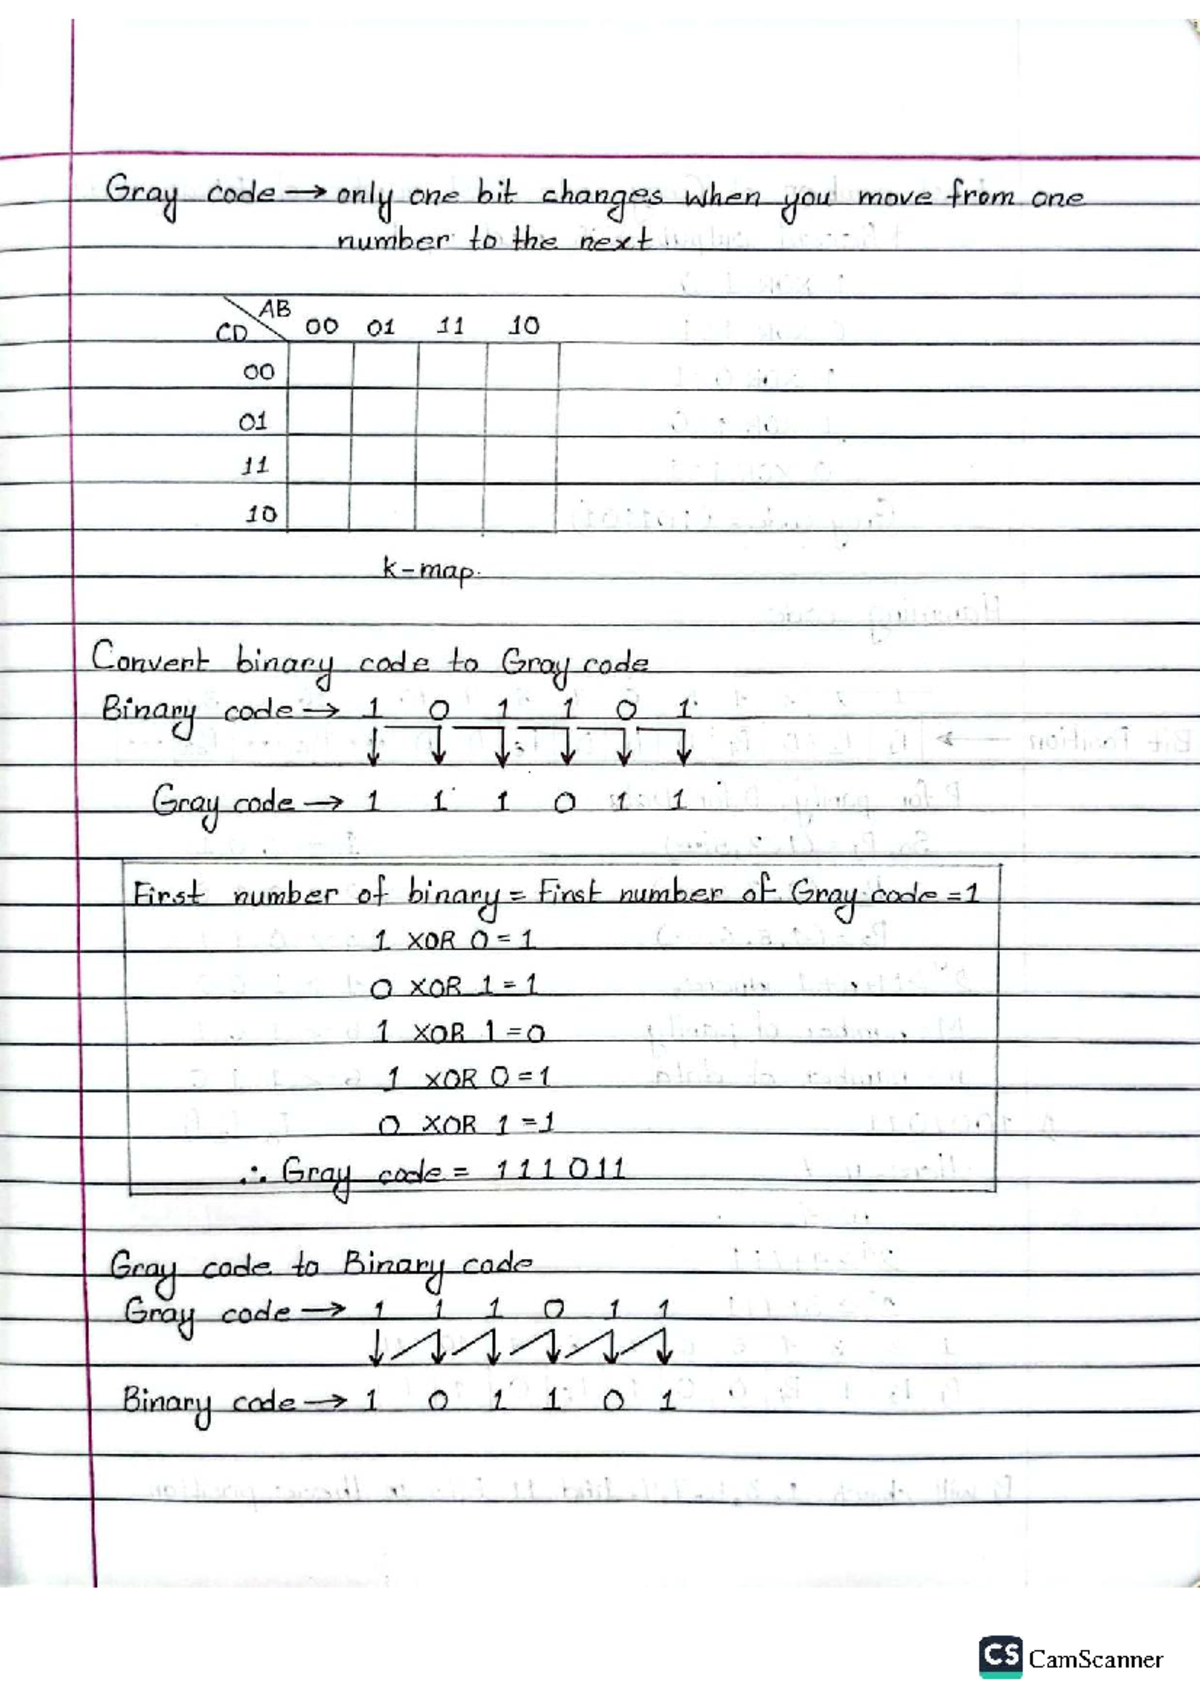 Gray code → only one bit changes when you move from one
number to the next
AB
CD 00 01 11 10
00
01
11
10
k-map.
Convert binary code to Gray code
Binary code → 1 0 1 1 0 1
Gray code → 1 1 1 0 1 1
First number of binary = First number of Gray code = 1
1 XOR 0 = 1
0 XOR 1 = 1
1 XOR 1 = 0
1 XOR 0 = 1
0 XOR 1 = 1
∴ Gray code = 111011
Gray code to Binary code
Gray code → 1 1 1 0 1 1
Binary code → 1 0 1 1 0 1
CS CamScanner